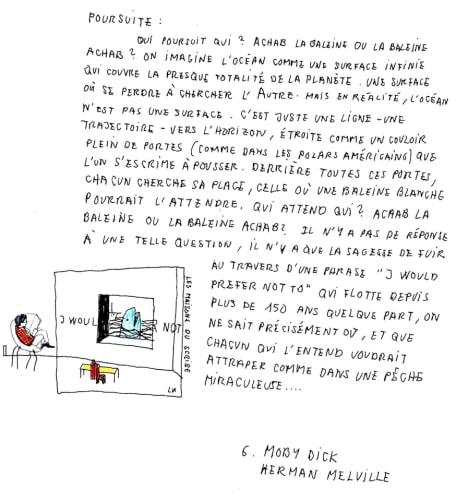 POURSUITE :
QUI POURSUIT QUI ? ACHAB LA BALEINE OU LA BALEINE
ACHAB ? ON IMAGINE L'OCÉAN COMME UNE SURFACE INFINIE
QUI COUVRE LA PRESQUE TOTALITÉ DE LA PLANÈTE. UNE SURFACE
OÙ SE PERDRE À CHERCHER L'AUTRE. MAIS EN RÉALITÉ, L'OCÉAN
N'EST PAS UNE SURFACE. C'EST JUSTE UNE LIGNE - UNE
TRAJECTOIRE - VERS L'HORIZON, ÉTROITE COMME UN COULOIR
PLEIN DE PORTES (COMME DANS LES POLARS AMÉRICAINS) QUE
L'UN S'ESCRIME À POUSSER. DERRIÈRE TOUTES CES PORTES,
CHACUN CHERCHE SA PLACE, CELLE OÙ UNE BALEINE BLANCHE
POURRAIT L'ATTENDRE. QUI ATTEND QUI ? ACAAB LA
BALEINE OU LA BALEINE ACHAB ? IL N'Y A PAS DE RÉPONSE
À UNE TELLE QUESTION, IL N'Y A QUE LA SAGESSE DE FUIR
AU TRAVERS D'UNE PHRASE "I WOULD
PREFER NOT TO" QUI FLOTTE DEPUIS
PLUS DE 150 ANS QUELQUE PART, ON
NE SAIT PRÉCISÉMENT OÙ, ET QUE
CHACUN QUI L'ENTEND VOUDRAIT
ATTRAPER COMME DANS UNE PÊCHE
MIRACULEUSE....
I WOUL NOT
LES MAISONS DU SCRIBE
6. MOBY DICK
HERMAN MELVILLE